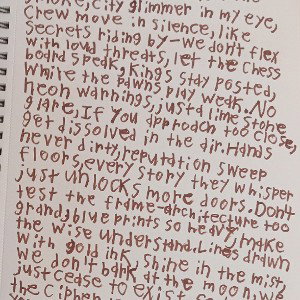 smoke, city glimmer in my eye,
Crew move in silence, like
Secrets riding by-we don't flex
with loud threats, let the Chess
board speak, Kings stay posted,
while the pawns play weak. No
neon warnings, just d lime stone
glare, If you approach too close,
get dissolved in the air. Hands
never dirty, reputation sweep
floors, every story they whisper
just unlocks more doors. Don't
test the frame-architecture too
grand, blue prints so heavy, make
the wise understand. Lines drawn
with gold ink, shine in the mist,
we don't bark at the moon, we
just cease to exist
the Cipher